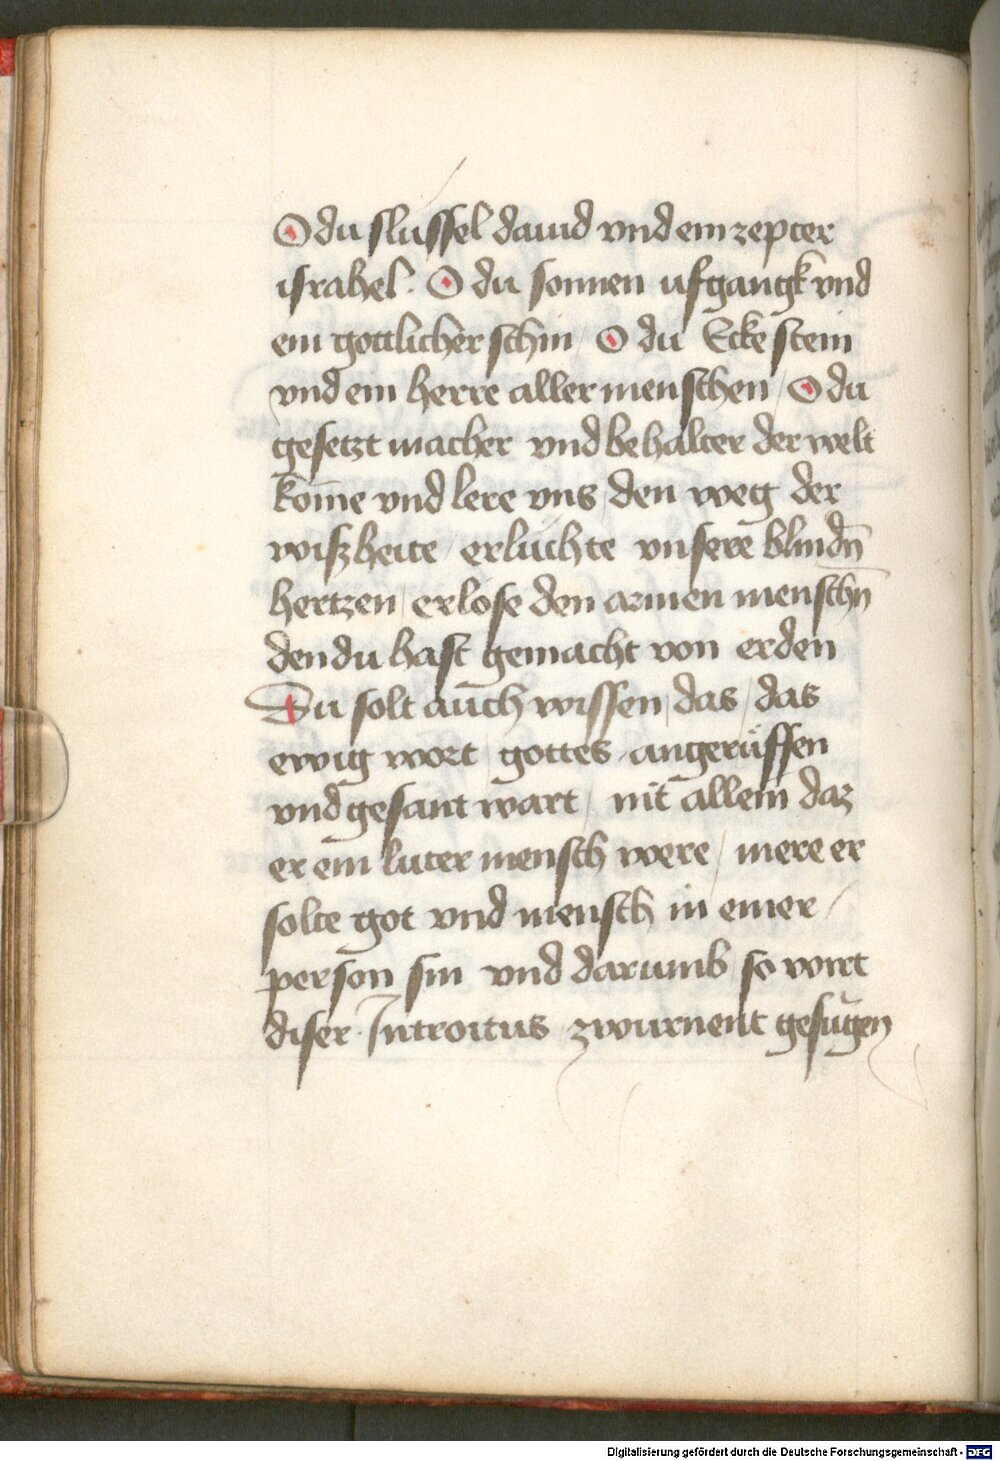 O du slussel dauid vnd ein zepter
israhel. O du sonnen ufgangk vnd
ein gottlicher schin / O du Ecke stein
vnd ein herre aller menschen / O du
gesetzt macher vnd behalter der welt
kōme vnd lere vns den weg der
wiszheite / erluchte vnsere blindn̄
hertzen / erlose den armen menschn̄
den du hast gemacht von erden
Du solt auch wissen / das / das
ewig wort gottes angerůffen
vnd gesant wart / nit allein daz
er ein luter mensch were / mere er
solte got vnd mensch in einer /
person sin vnd darumb so wirt
diser Introitus zwurnent gesūgen
Digitalisierung gefördert durch die Deutsche Forschungsgemeinschaft - DFG